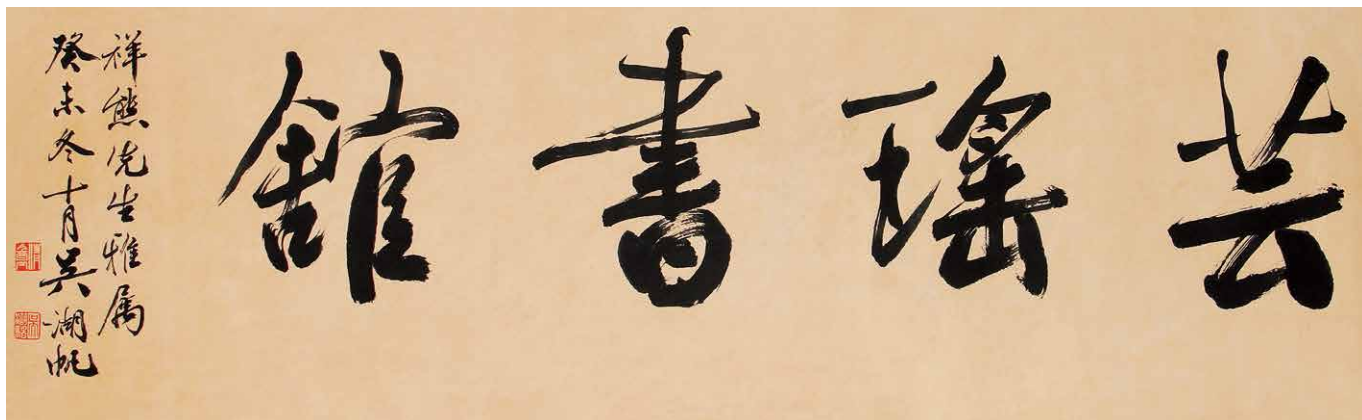 芸瑤書館
祥熊先生雅属
癸未冬十月吴湖帆